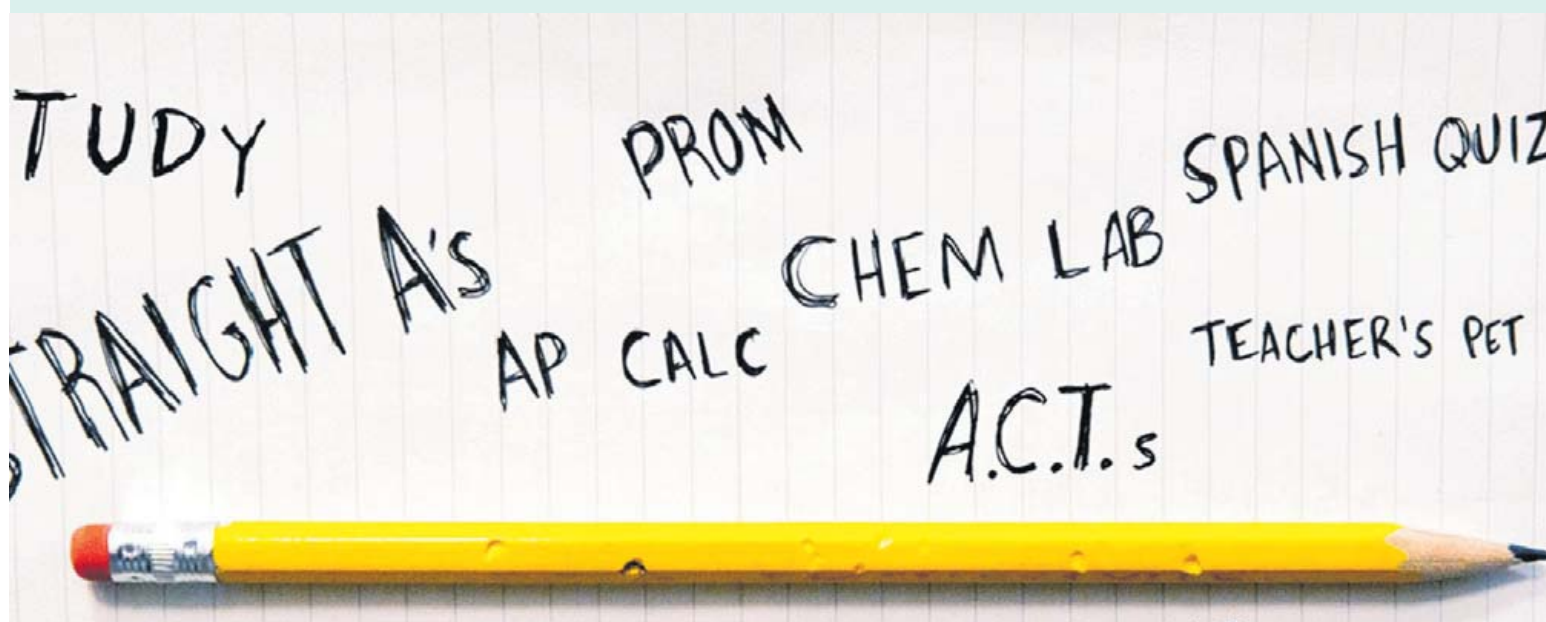 TUDY
PROM
SPANISH QUIZ
TRAIGHT A's
CHEM LAB
AP CALC
TEACHER'S PET
A.C.T.s